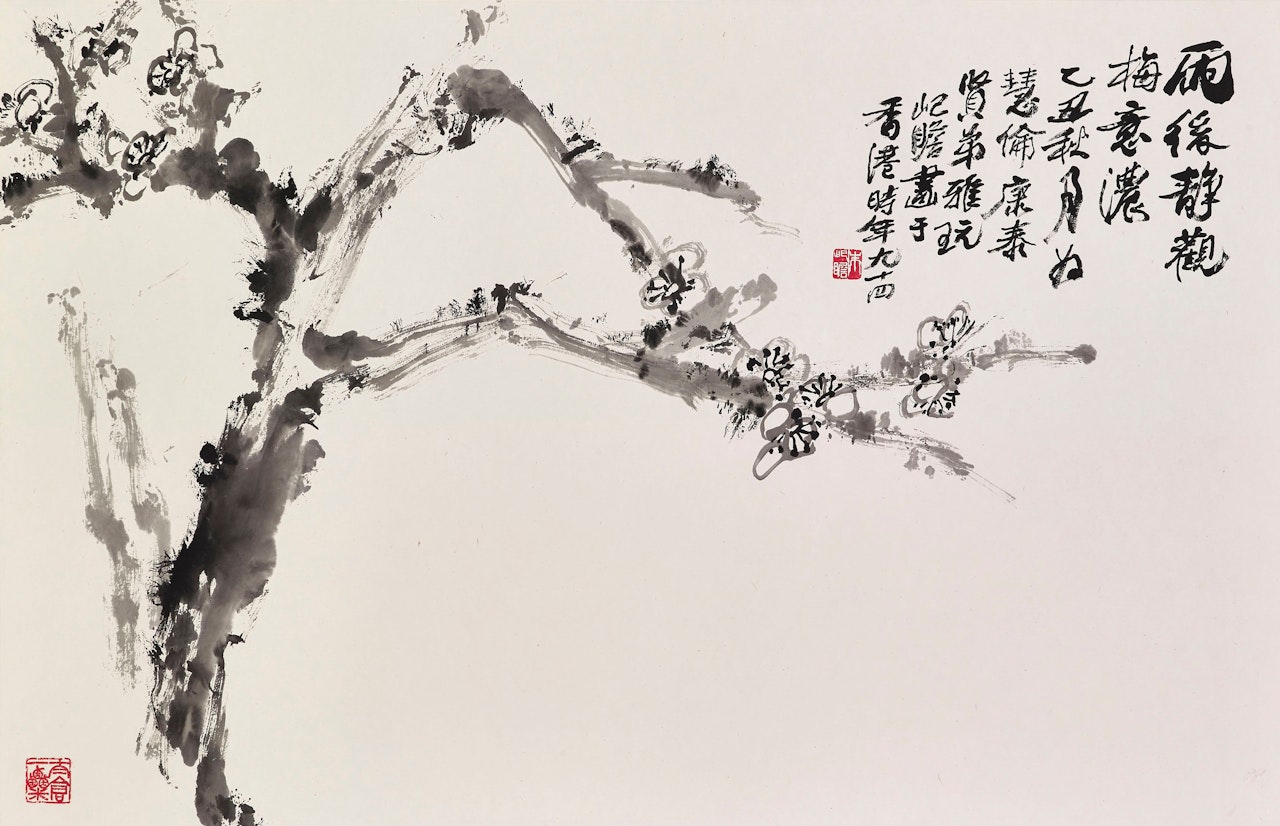 雨後静觀
梅意濃
乙丑秋月为
慧倫康泰
賢弟雅玩
屺瞻畫于
香港時年九十四
朱屺瞻